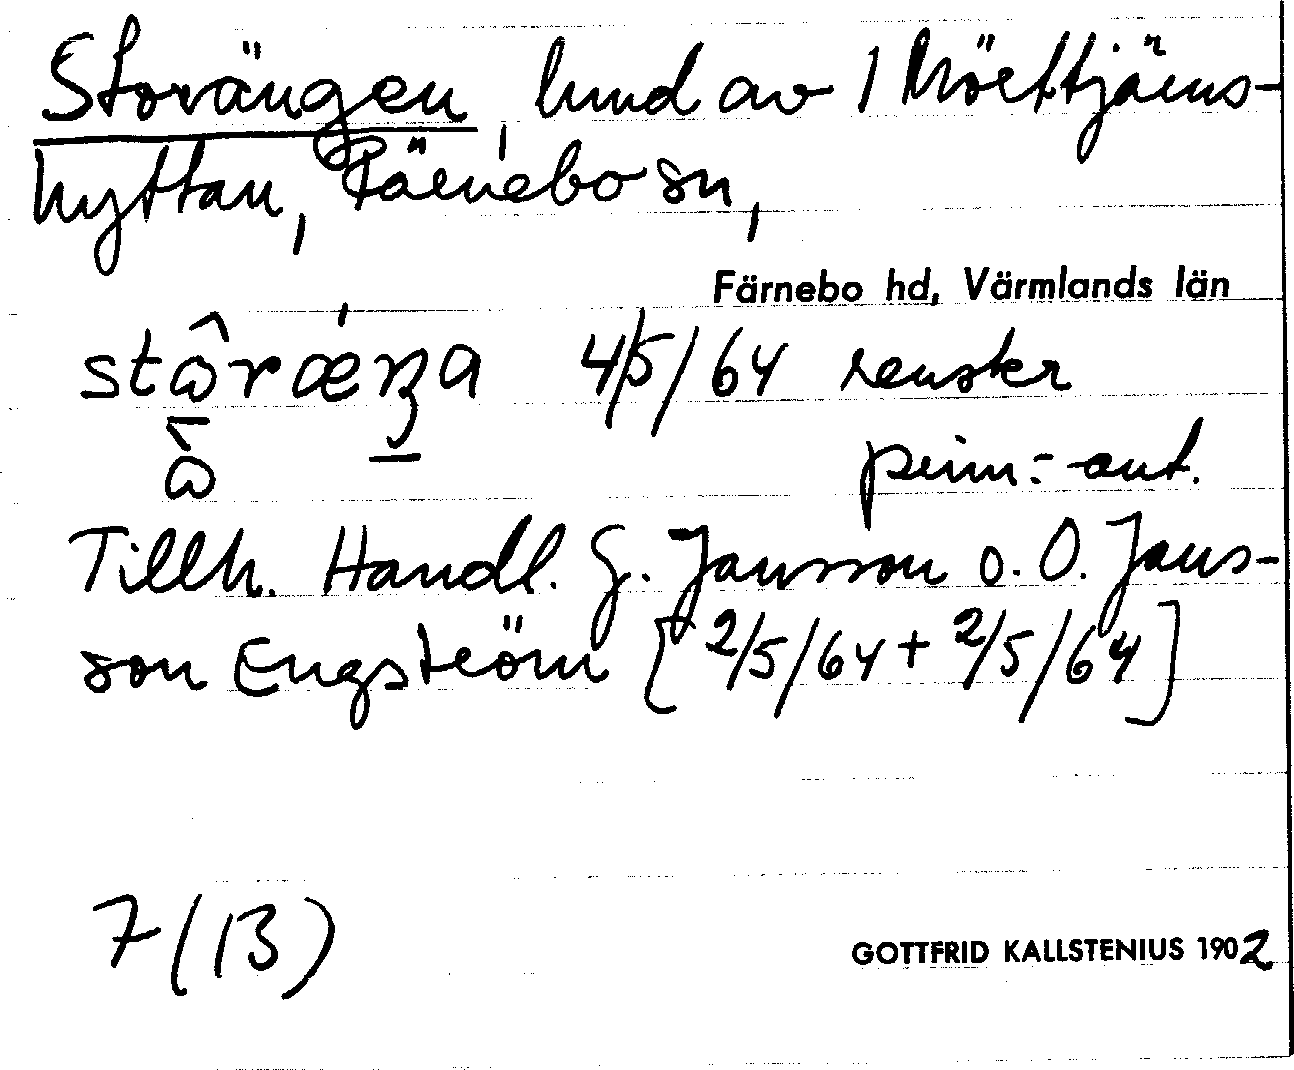 Storängen, hmd av 1 Mörttjärns-
hyttan, Färnebo sn,
Färnebo hd, Värmlands län
4/5/64 renskr
prim.-ant.
Tillh. Handl. G. Jansson o. O. Jans-
son Engström [2/5/64 + 2/5/64]
7 (13)
GOTTFRID KALLSTENIUS 1902